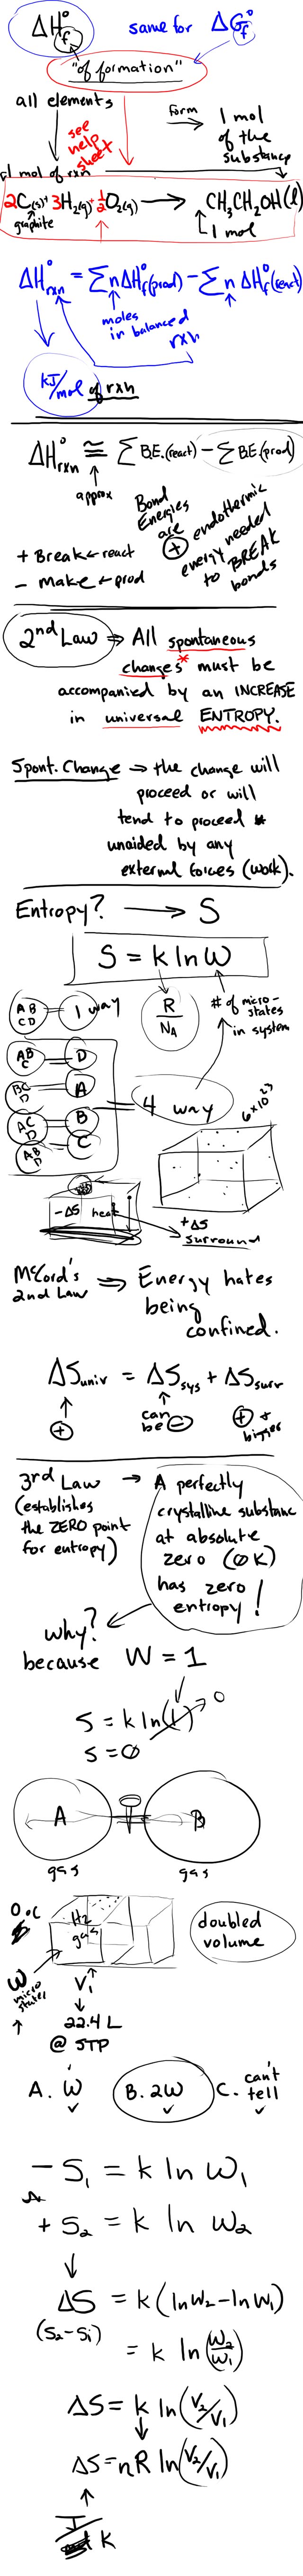 ΔH°f same for ΔG°f
"of formation"
all elements
form → 1 mol
of the
substance
see
help
sheet
1 mol of rxn
2C(s) + 3H2(g) + ½O2(g) → CH3CH2OH(l)
graphite
1 mol
ΔH°rxn = Σn ΔH°f(prod) − Σn ΔH°f(react)
moles
in balanced
rxn
kJ/mol of rxn
ΔH°rxn ≅ Σ B.E.(react) − Σ B.E.(prod)
approx
Bond
Energies
are
⊕ endothermic
energy needed
to BREAK
bonds
+ Break ← react
− Make ← prod
2nd Law ⇒ All spontaneous
changes* must be
accompanied by an INCREASE
in universal ENTROPY.
Spont. Change ⇒ the change will
proceed or will
tend to proceed
unaided by any
external forces (work).
Entropy? → S
S = k ln W
R/NA
# of micro-
states
in system
AB
CD
1 way
AB
C
D
BC
D
A
AC
D
B
AB
D
C
= 4 way
6×10^23
−ΔS heat
+ΔS
surround
McCord's
2nd Law ⇒ Energy hates
being
confined.
ΔSuniv = ΔSsys + ΔSsurr
⊕
can
be ⊖
⊕ +
bigger
3rd Law → A perfectly
(establishes
the ZERO point
for entropy)
crystalline substance
at absolute
zero (0 K)
has zero
entropy!
why?
because W = 1
S = k ln(1) → 0
S = 0
A B
gas gas
0°C
H2
gas
doubled
volume
W
micro
states
V1
22.4 L
@ STP
A. W B. 2W C. can't
tell
− S1 = k ln W1
+ S2 = k ln W2
ΔS = k (ln W2 − ln W1)
(S2 − S1)
= k ln (W2/W1)
ΔS = k ln (V2/V1)
ΔS = nR ln (V2/V1)
J
K